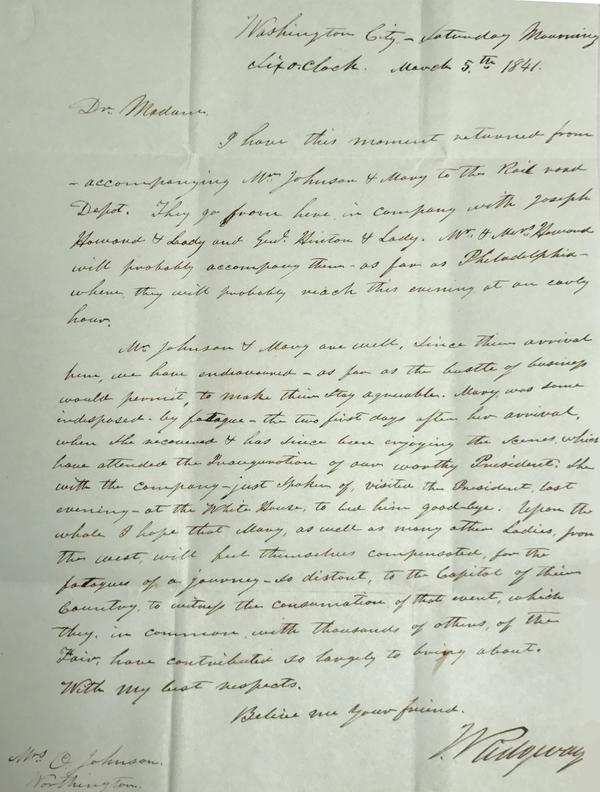 Washington City - Saturday Mourning
Six o.Clock. March 5.th 1841.
Dr. Madam,
I have this moment returned from
- accompanying Mr. Johnson & Mary to the Rail road
Depot. They go from here, in company with Joseph
Howard & Lady and Genl. Hinton & Lady. Mr. & Mrs Howard
will probably accompany them - as far as Philadelphia -
where they will probably reach this evening at an early
hour.
Mr Johnson & Mary are well, since their arrival
here, we have endeavoured - as far as the bustle of business
would permit, to make their stay agreeable. Mary, was some
indisposed - by fatague - the two first days after her arrival,
when she recovered & has since been enjoying the scenes, which
have attended the Inauguration of our worthy President. She
with the company - just spoken of, visited the President, last
evening - at the White House, to bid him good-bye. Upon the
whole I hope that Mary, as well as many other Ladies, from
the west, will feel themselves compensated, for the
fatagues of a journey - so distant, to the Capitol of their
Country, to witness the consumation, of that event, which
they, in common, with thousands of others, of the
Fair, have contributed so largely to bring about.
With my best respects.
Believe me Your friend.
J. Ridgway
Mrs. O. Johnson.
Worthington.